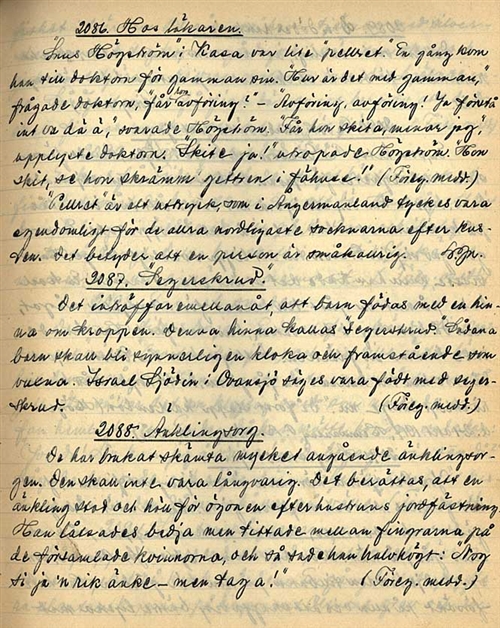 2086. Hos läkaren.
Lars Högström i Kasa var lite "pellret". En gång kom
han till doktorn för gamman sin. "Hur är det med gamman,"
frågade doktorn, "får hon avföring?" – "Avföring, avföring! Ja förstå
int va dä ä," svarade Högström. "Får hon skita, menar jag,"
upplyste doktorn. "Skite ja!" utropade Högström. "Hon
skit, se hon skrämm gettren i fähuse!" (Föreg. medd.)
"Pellret" är ett uttryck, som i Ångermanland tyckes vara
egendomligt för de allra nordligaste socknarna efter kus-
ten. Det betyder att en person är småkaurig.
2087. "Segerskrud."
Det inträffar emellanåt, att barn födas med en hin-
na om kroppen. Denna hinna kallas "segerskrud". Sådana
barn skall bli synnerligen kloka och framstående som
vuxna. Israel Sjödin i Ovansjö säges vara född med seger-
skrud. (Föreg. medd.)
2088. Änklingsorg.
De har brukat skämta mycket angående änklingsor-
gen. Den skall inte vara långvarig. Det berättas, att en
änkling stod och höll för ögonen efter hustruns jordfästning.
Han låtsades bedja men tittade mellan fingrarna på
de församlade kvinnorna, och så sade han halvhögt: "Nog
si ja 'n rik änke – men taga!" (Föreg. medd.)